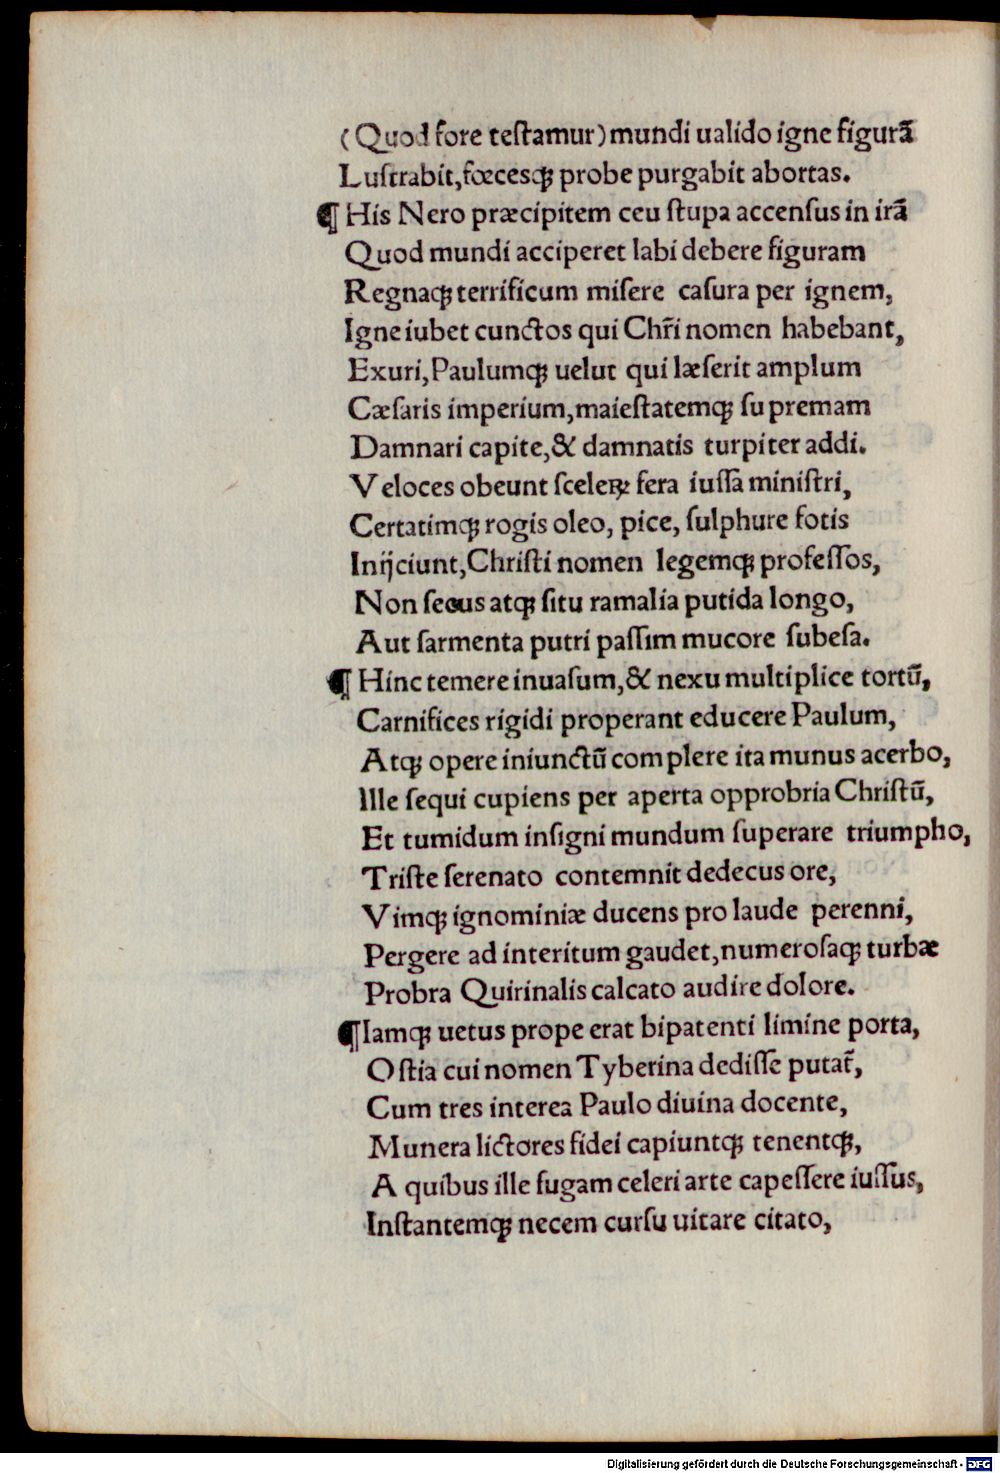 (Quod fore teſtamur) mundi ualido igne figurā
Luſtrabit, fœcesq; probe purgabit abortas.
¶ His Nero præcipitem ceu ſtupa accenſus in irā
Quod mundi acciperet labi debere figuram
Regnaq; terrificum miſere caſura per ignem,
Igne iubet cunctos qui Chr̄i nomen habebant,
Exuri, Paulumq; uelut qui læſerit amplum
Cæſaris imperium, maieſtatemq; ſupremam
Damnari capite, & damnatis turpiter addi.
Veloces obeunt ſceleꝝ fera iuſſa miniſtri,
Certatimq; rogis oleo, pice, ſulphure fotis
Inijciunt, Chriſti nomen legemq; profeſſos,
Non ſecus atq; ſitu ramalia putida longo,
Aut ſarmenta putri paſſim mucore ſubeſa.
¶ Hinc temere inuaſum, & nexu multiplice tortū,
Carnifices rigidi properant educere Paulum,
Atq; opere iniunctū complere ita munus acerbo,
Ille ſequi cupiens per aperta opprobria Chriſtū,
Et tumidum inſigni mundum ſuperare triumpho,
Triſte ſerenato contemnit dedecus ore,
Vimq; ignominiæ ducens pro laude perenni,
Pergere ad interitum gaudet, numeroſaq; turbæ
Probra Quirinalis calcato audire dolore.
¶ Iamq; uetus prope erat bipatenti limine porta,
Oſtia cui nomen Tyberina dediſſe putat̄,
Cum tres interea Paulo diuina docente,
Munera lictores fidei capiuntq; tenentq;,
A quibus ille fugam celeri arte capeſſere iuſſus,
Inſtantemq; necem curſu uitare citato,
Digitalisierung gefördert durch die Deutsche Forschungsgemeinschaft - DFG